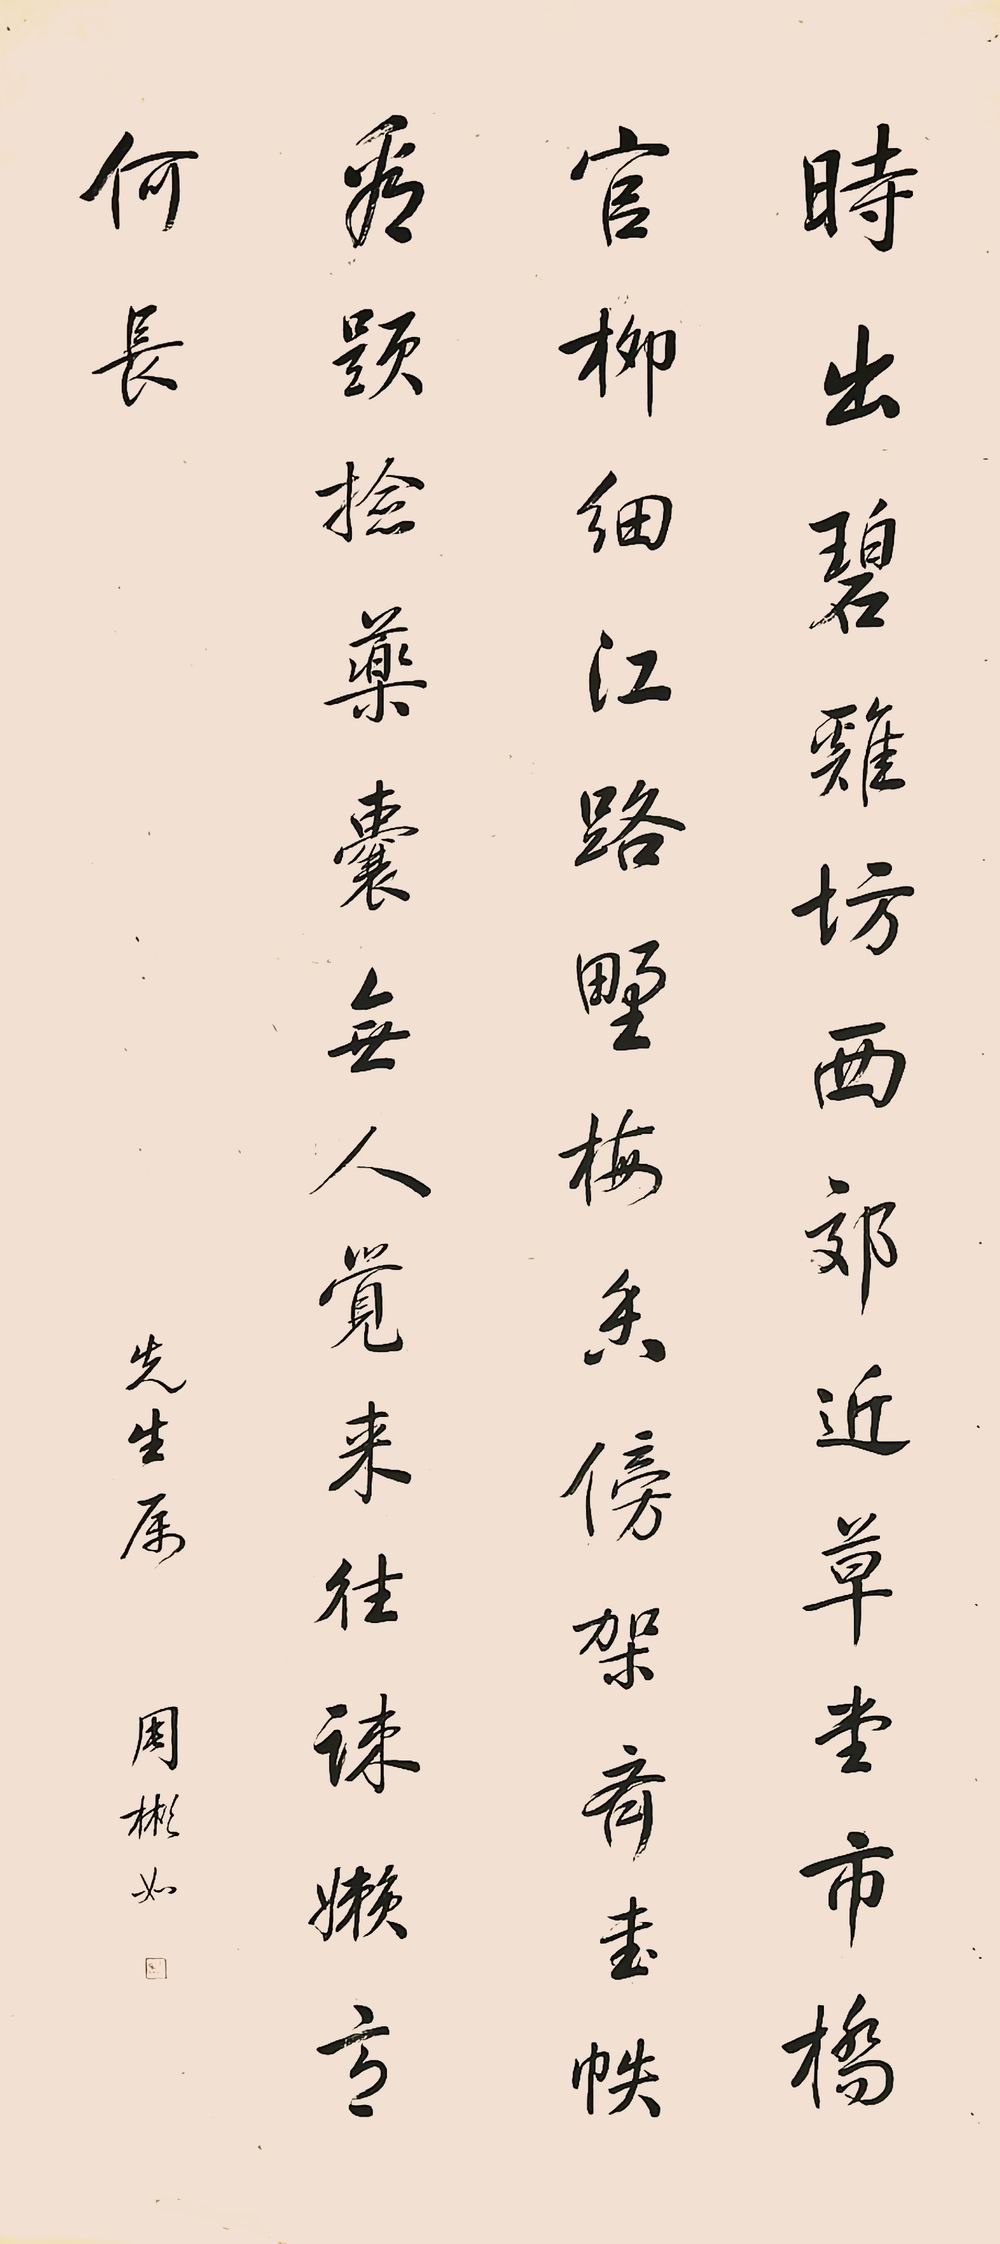 時出碧雞坊西郊近草堂市橋
官柳細江路墅梅香傍架齊書帙
看題撿藥囊無人覺来往疎嬾意
何長
先生属 周彬如